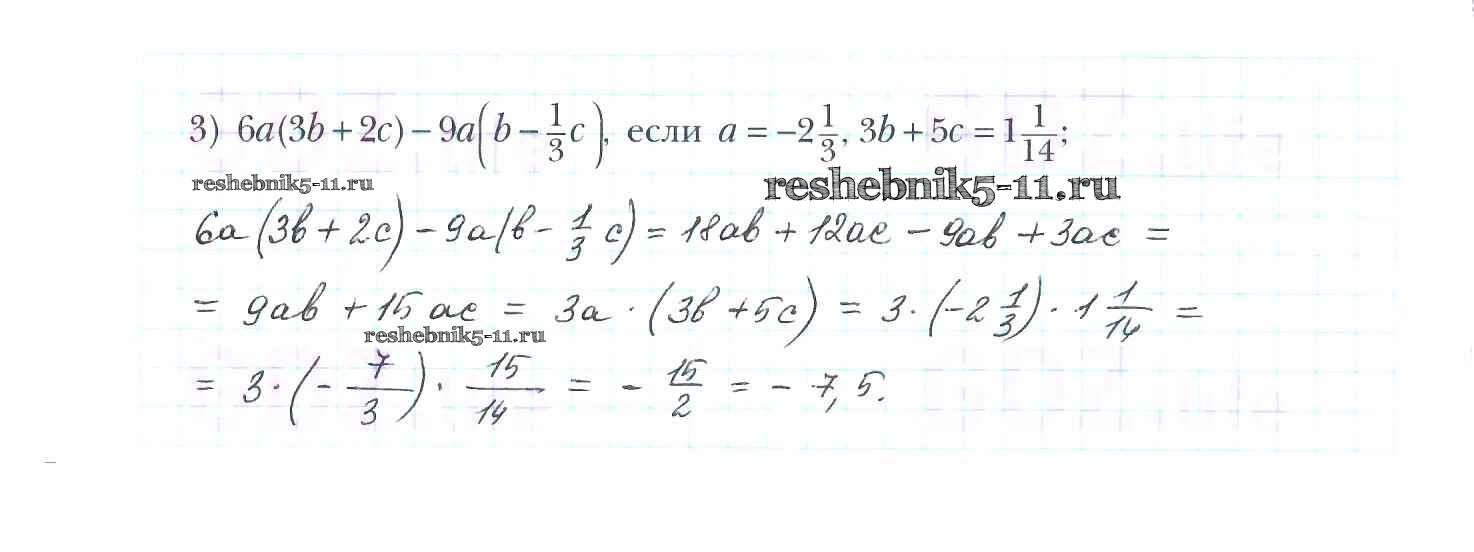 3) 6a(3b + 2c) − 9a(b − 1/3 c), если a = −2 1/3, 3b + 5c = 1 1/14;
reshebnik5-11.ru reshebnik5-11.ru
6a(3b + 2c) − 9a(b − 1/3 c) = 18ab + 12ac − 9ab + 3ac =
= 9ab + 15ac = 3a · (3b + 5c) = 3 · (−2 1/3) · 1 1/14 =
reshebnik5-11.ru
= 3 · (− 7/3) · 15/14 = − 15/2 = − 7,5.